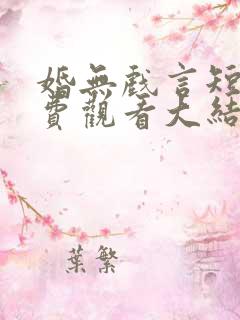 婚無戲言短
費觀看大結
葉繁